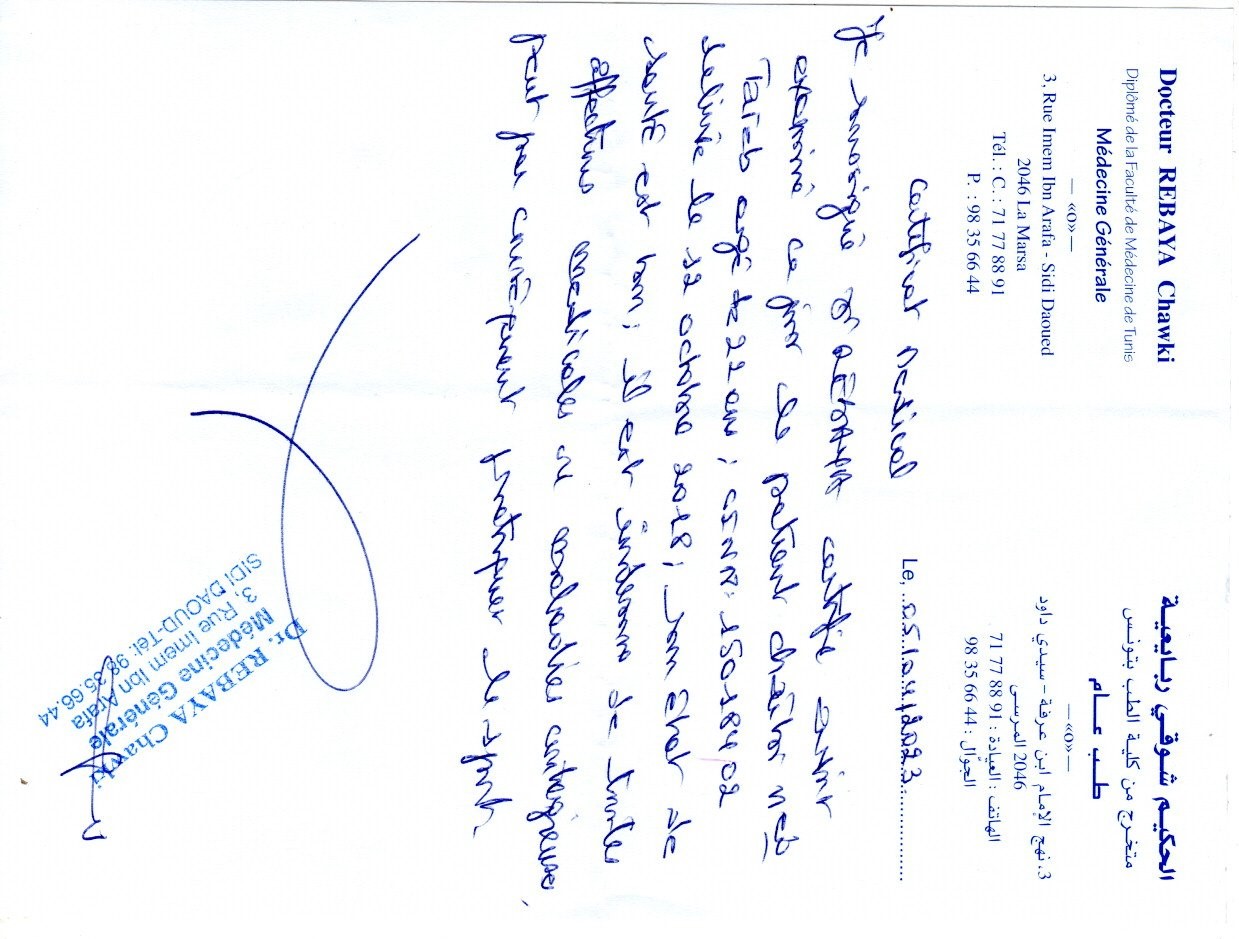 Docteur REBAYA Chawki
Diplômé de la Faculté de Médecine de Tunis
Médecine Générale
— «o» —
3, Rue Imem Ibn Arafa - Sidi Daoued
2046 La Marsa
Tél. : C. : 71 77 88 91
P. : 98 35 66 44
الحكيم شوقي ربايعية
متخرج من كلية الطب بتونس
طب عام
— «o» —
3، نهج الإمام ابن عرفة - سيدي داود
2046 المرسى
الهاتف : العيادة : 91 88 77 71
الجوّال : 44 66 35 98
Le, 05/04/2023
Certificat Médical
Je soussigné Dr REBAYA certifie avoir
examiné ce jour le patient
agé de 22 ans ; CIN N°:
délivré le 12 octobre 2018 ; son état de
santé est bon, il est indemne de toutes
affections médicales ou maladies contagieuses,
peut par conséquent pratiquer le sport.
Dr. REBAYA Chawki
Médecine Générale
3, Rue Imem Ibn Arafa
SIDI DAOUD-Tél: 98.35.66.44